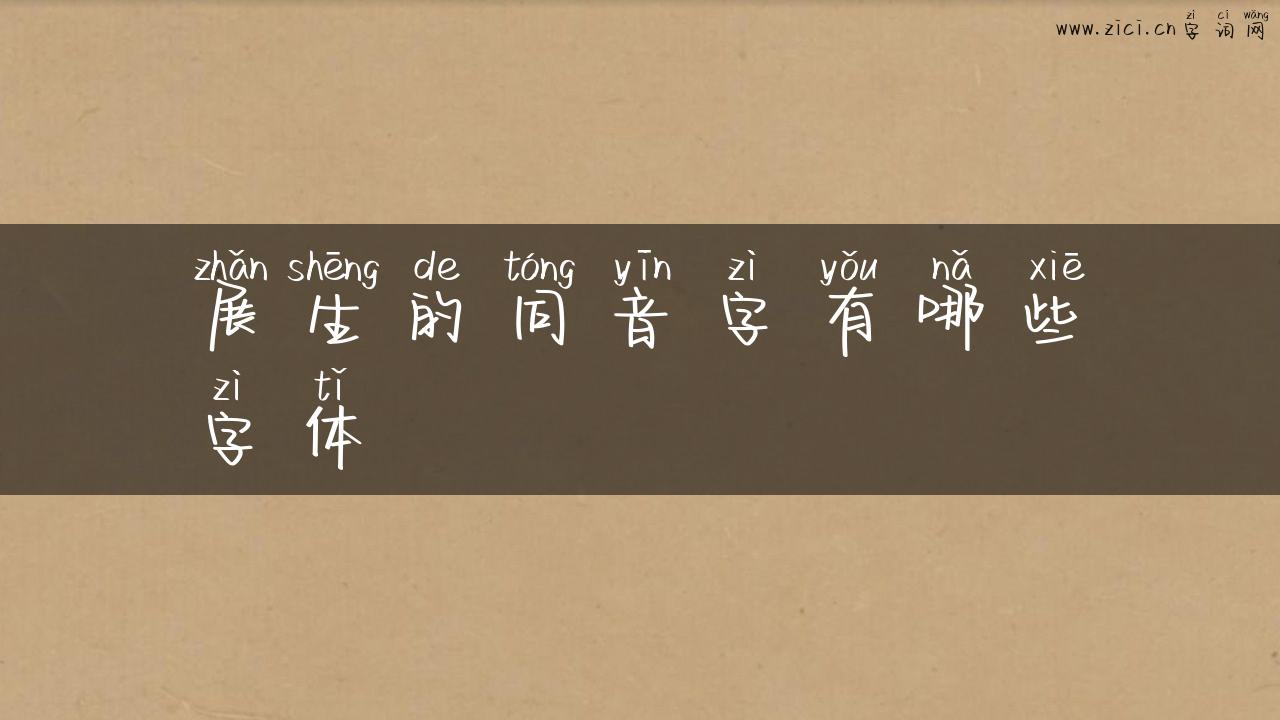 zì cí wǎng
www.zici.cn 字词网
zhǎn shēng de tóng yīn zì yǒu nǎ xiē
展生的同音字有哪些
zì tǐ
字体